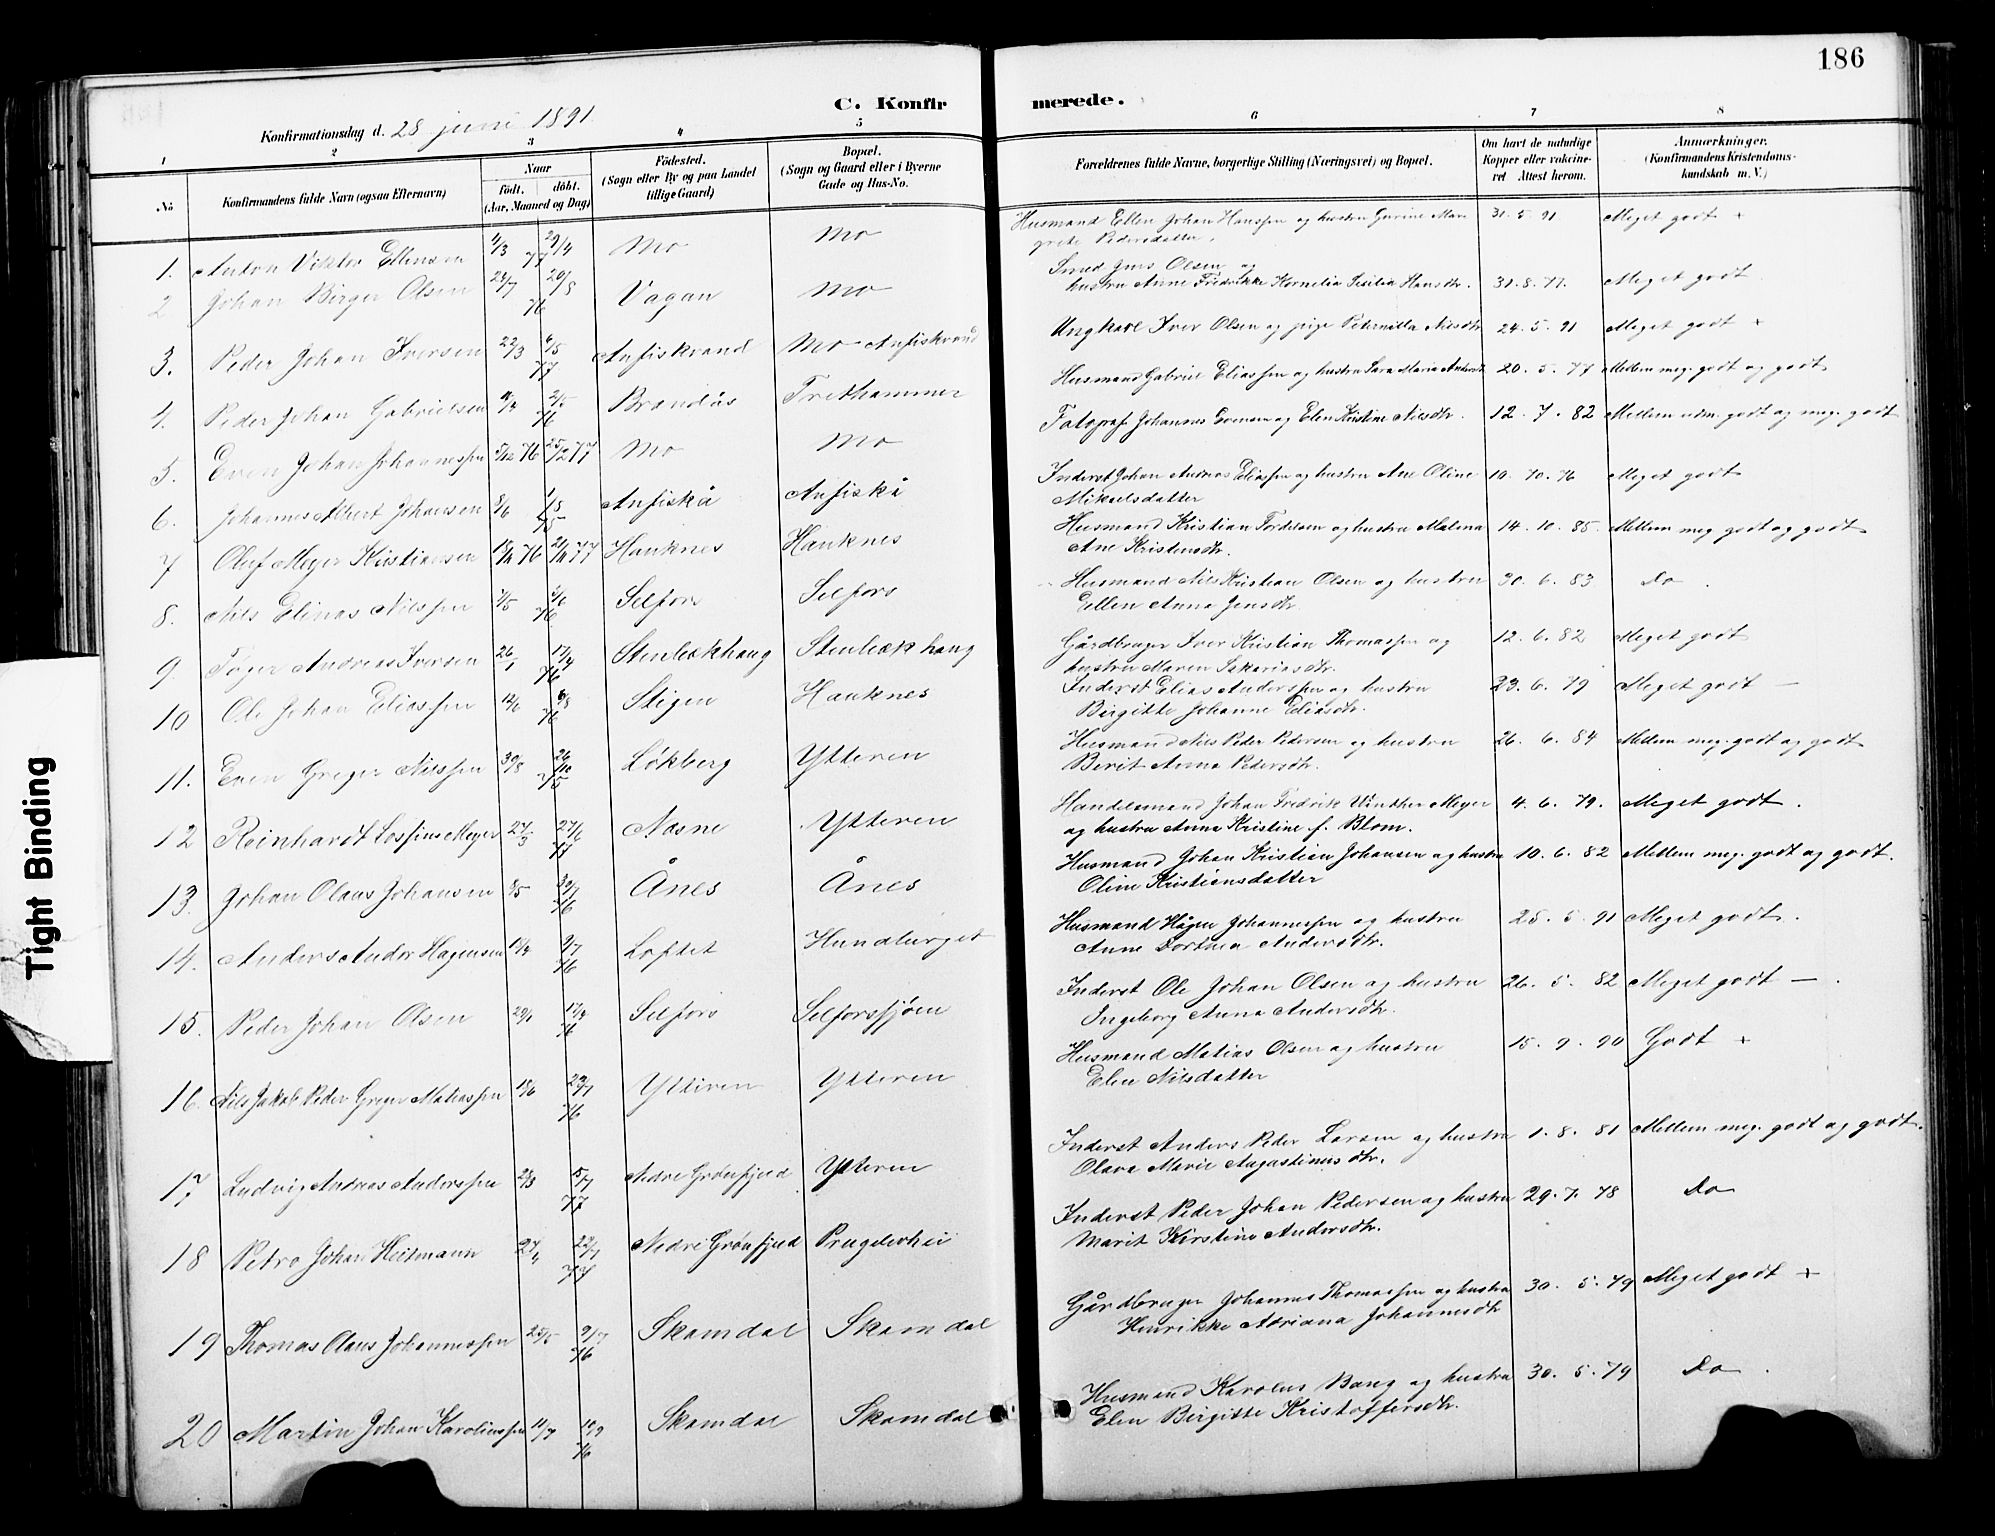 186
C. Konfirmerede.
Konfirmationsdag d. 28 juni 1891.
1 2 3 4 5 6 7 8
No
Konfirmandens fulde Navn (ogsaa Efternavn)
Naar
födt. döbt.
(Aar, Maaned og Dag)
Födested.
(Sogn eller By og paa Landet
tillige Gaard)
Bopæl.
(Sogn og Gaard eller i Byerne
Gade og Hus-No.
Forældrenes fulde Navne, borgerlige Stilling (Næringsvei) og Bopæl.
Om havt de naturlige
Kopper eller vakcine-
ret Attest herom.
Anmærkninger.
(Konfirmandens Kristendoms-
kundskab m. V.)
1. Anton Viktor Ellensen 4/3 29/4 77 Mo Mo Husmand Ellen Johan Hanssen og hustru Gurine Mar 31. 5. 91 Meget godt +
grete Pedersdatter.
2 Johan Birger Olsen 24/7 20/8 76 Vagan Mo Smed Jens Olsen og
hustru Anne Fredrikke Kornelia Sisilia Hansdtr. 31. 8. 77. Meget godt
3. Peder Johan Iversen 22/3 6/5 77 Anfiskvand Mo Anfiskvand Ungkarl Iver Olsen og pige Peternilla Nilsdtr 24. 5. 91 Meget godt +
4. Peder Johan Gabrielsen 2/5 76 Brandås Trethammer Husmand Gabriel Eliassen og hustru Sara Maria Andersdtr 20. 5. 77 Mellem meg. godt og godt
5. Even Johan Johannessen 5/12 76 25/2 77 Mo Mo Fotograf Johannes Evensen og Elen Kristine Nilsdtr. 12. 7. 82 Mellem udm. godt og meg. godt
6. Johannes Albert Johansen 8/6 Anfiskå Anfiskå Inderst Johan Andreas Eliassen og hustru Ane Oline 10. 10. 76 Meget godt
Mikaelsdatter
7 Oluf Meyer Kristiansen 76 77 Hauknes Hauknes Husmand Kristian Tordelsen og hustru Malena 14. 10. 85. Mellem meg. godt og godt
Ane Kristensdtr.
8. Nils Elinas Nilssen 76 Selfors Selfors Husmand Nils Kristian Olsen og hustru 30. 6. 83 Do
Ellen Anna Jensdtr.
9. Tøger Andreas Iversen 26/1 17/4 76 Stenbækhaug Stenbækhaug Gårdbruger Iver Kristian Thomassen og 12. 6. 82 Meget godt
hustru Maren Sakariasdtr.
10 Ole Johan Eliassen 12/6 6/8 76 Stigen Hauknes Inderst Elias Anderssen og hustru 23. 6. 79 Meget godt —
Birgitte Johanne Eliasdtr.
11. Even Greger Nilssen 30/8 26/10 75 Løkberg Ytteren Husmand Nils Peder Pedersen og hustru 26. 6. 84 Mellem meg. godt og godt
Berit Anna Pedersdtr.
12 Reinhardt Losfius Meyer 27/3 27/6 77 Næsne Ytteren Handelsmand Johan Fredrik Winther Meyer 4. 6. 79. Meget godt.
og hustru Anna Kristine f. Blom.
13. Johan Olaus Johansen 8/5 30/7 76 Ånes Ånes Husmand Johan Kristian Johansen og hustru 10. 6. 82 Mellem meg. godt og godt.
Oline Kristiansdatter
14. Anders Andor Hagensen 9/7 76 Loftet Hundburget Husmand Hågen Johannessen og hustru 25. 5. 91 Meget godt.
Anne Dortnea Andersdtr.
15. Peder Johan Olsen 29/1 17/4 76 Selfors Selforssjøen Inderst Ole Johan Olsen og hustru 26. 5. 82 Meget godt —
Ingeborg Anna Andersdtr.
16. Nils Jakob Peder Greger Matiassen 18/6 23/7 76 Ytteren Ytteren Husmand Matias Olsen og hustru 15. 9. 90 Godt +
Elen Nilsdatter
17 Ludvig Andreas Anderssen 28/3 15/7 77 Nedre Grønfjeld Ytteren Inderst Anders Peder Larsen og hustru 1. 8. 81 Mellem meg. godt og godt.
Olava Marie Augustinusdtr.
18 Petro Johan Heitmann 27/4 22/7 77 Nedre Grønfjeld Prugelerhei Inderst Peder Johan Pedersen og hustru 29. 7. 78 Do
Marit Kirstine Andersdtr.
19 Thomas Olaus Johannessen 25/5 9/7 76 Skamdal Skamdal Gårdbruger Johannes Thomassen og hustru 30. 5. 79 Meget godt +
Henrikke Adriana Johannesdtr
20 Martin Johan Karoliussen 11/7 10/9 76 Skamdal Skamdal Husmand Karolus Bang og hustru 30. 5. 79 Do
Elen Birgitte Kristoffersdtr.
Tight Binding